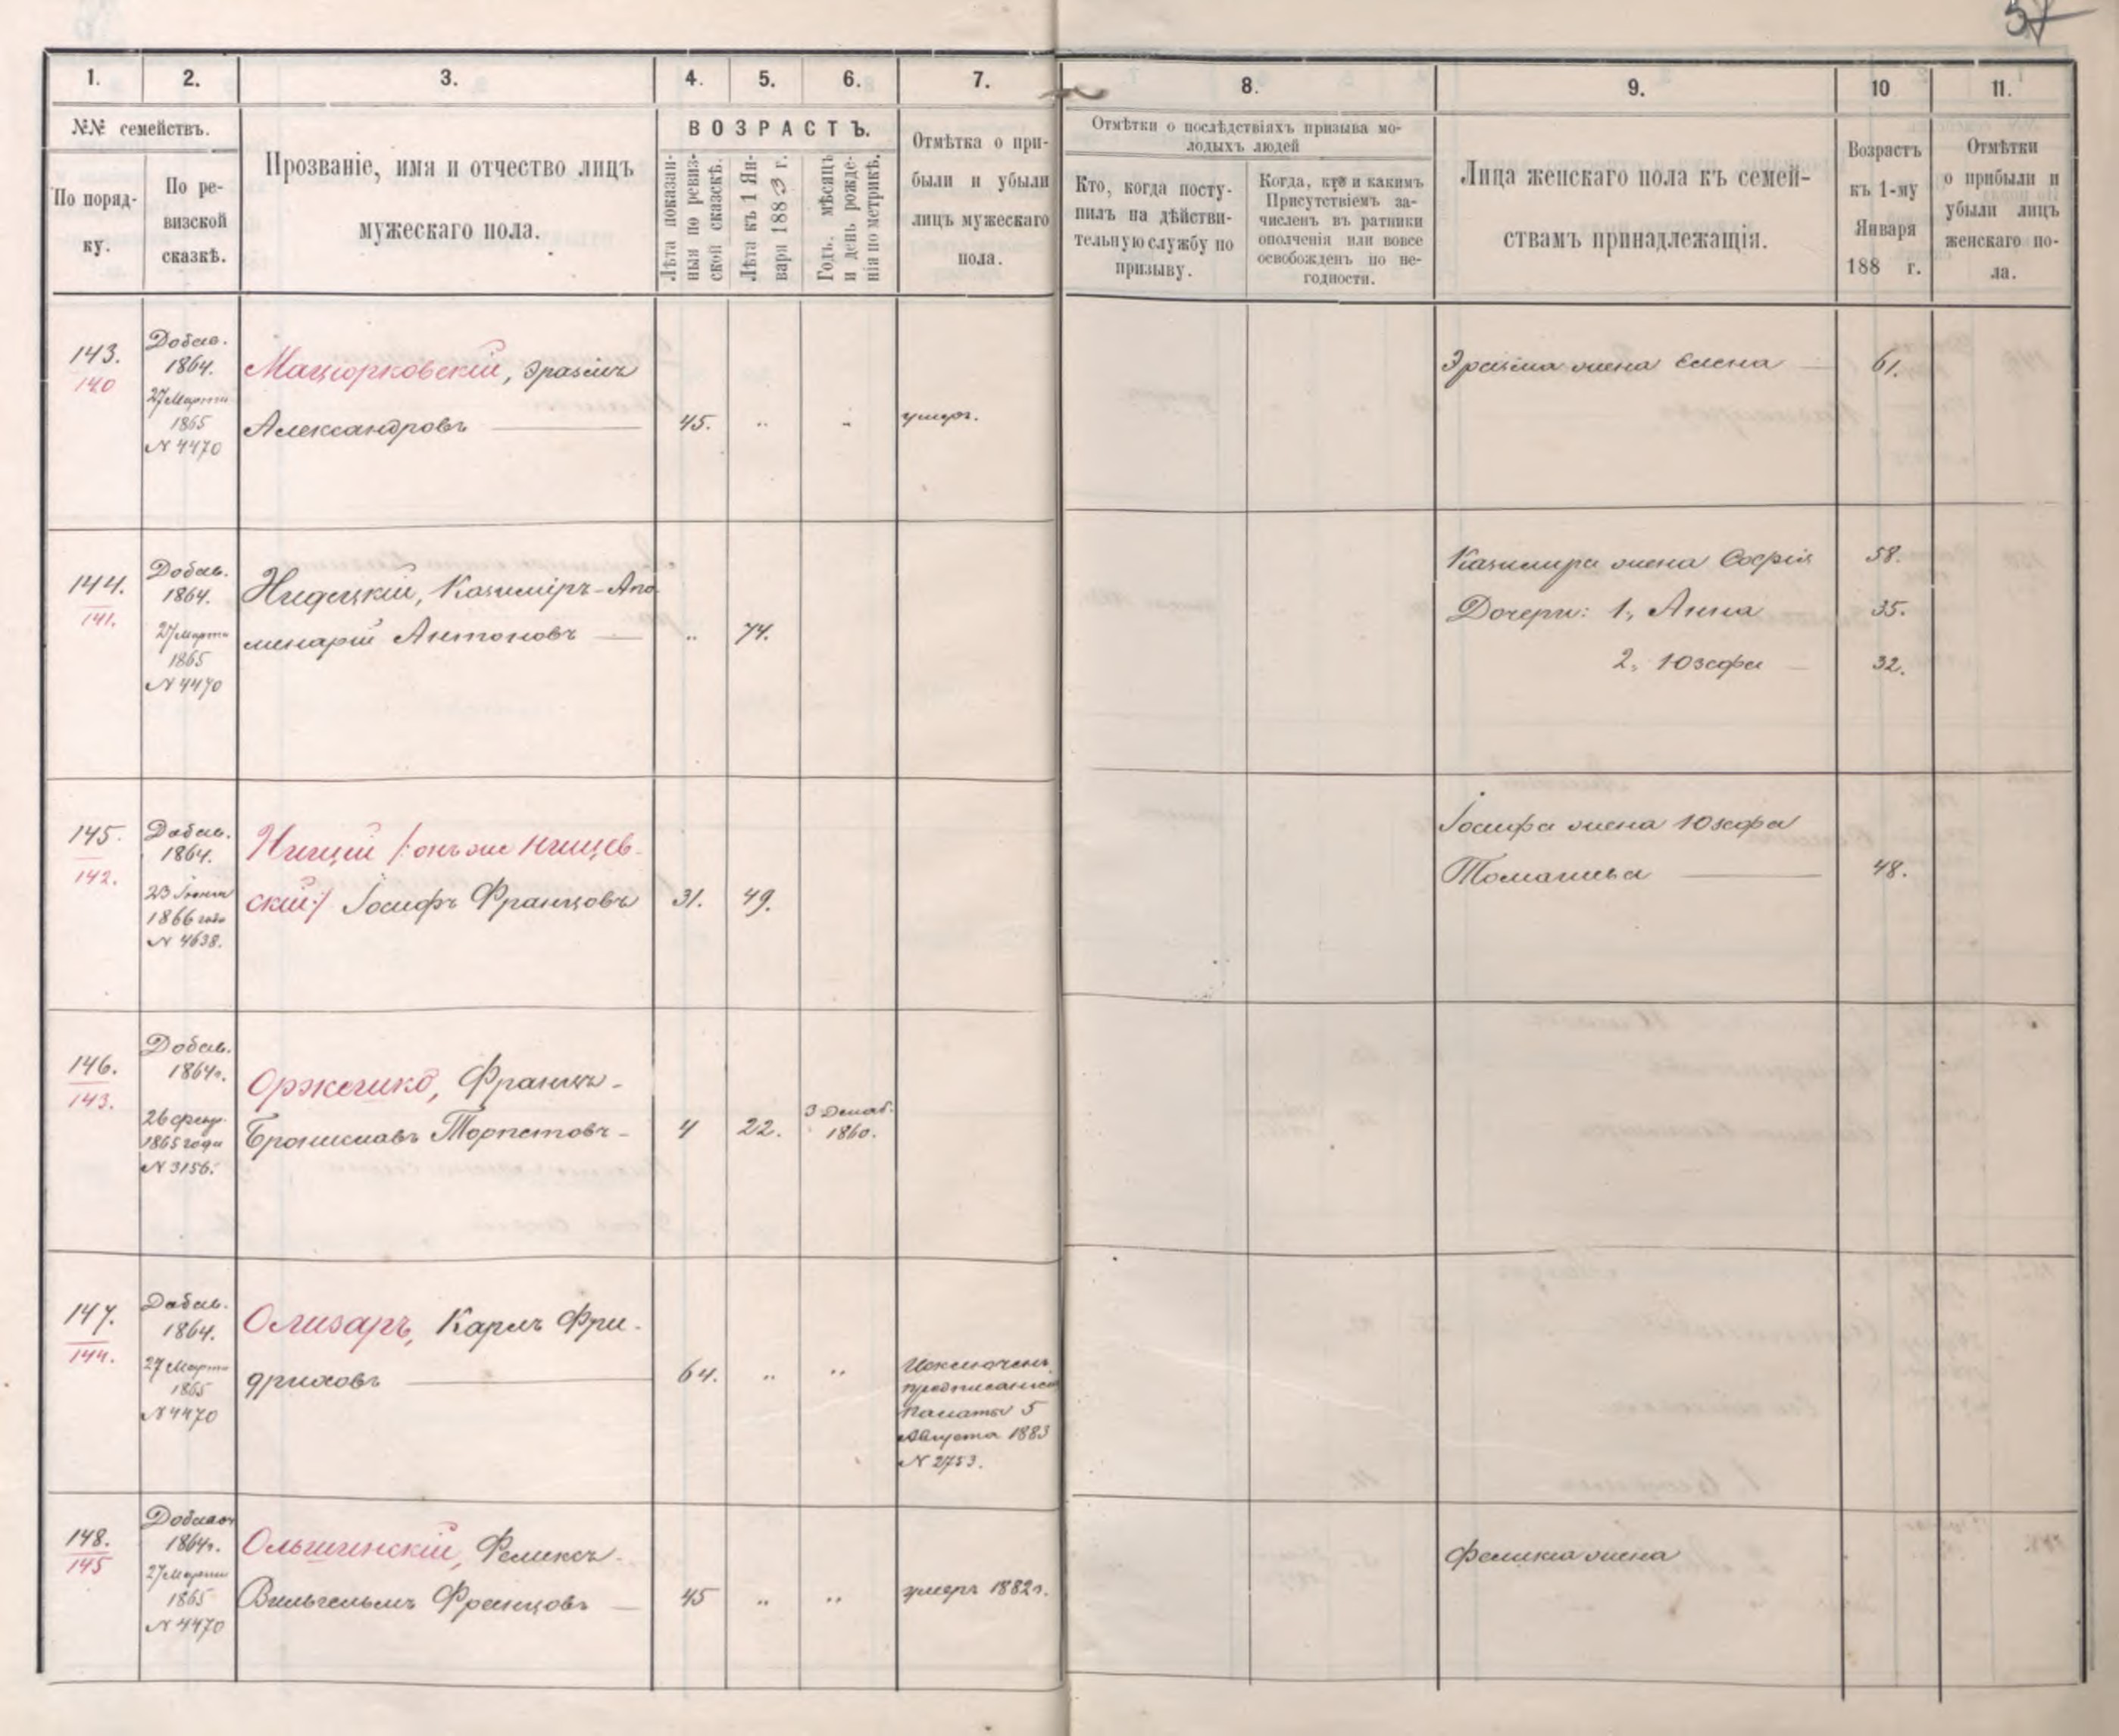 57
1.
2.
3.
4.
5.
6.
7.
8.
9.
10
11.
№№ семействъ.
По поряд-
ку.
По ре-
визской
сказкѣ.
Прозваніе, имя и отчество лицъ
мужескаго пола.
ВОЗРАСТЪ.
Лѣта показан-
ныя по ревиз-
ской сказкѣ.
Лѣта къ 1 Ян-
варя 1883 г.
Годъ, мѣсяцъ
и день рожде-
нія по метрикѣ.
Отмѣтка о при-
были и убыли
лицъ мужескаго
пола.
Отмѣтки о послѣдствіяхъ призыва мо-
лодыхъ людей
Кто, когда посту-
пилъ на дѣйстви-
тельную службу по
призыву.
Когда, кто и какимъ
Присутствіемъ за-
численъ въ ратники
ополченія или вовсе
освобожденъ по не-
годности.
Лица женскаго пола къ семей-
ствамъ принадлежащія.
Возрастъ
къ 1-му
Января
188 г.
Отмѣтки
о прибыли и
убыли лицъ
женскаго по-
ла.
143.
140
Добав.
1864.
27 Марта
1865
№ 4470
Мацюрковскій, Эразмъ
Александровъ
45.
„
„
умеръ.
Эразма жена Елена
61.
144.
141.
Добав.
1864.
27 Марта
1865
№ 4470
Нидецкій, Казимиръ-Апо
линарій Антоновъ
„
74.
Казимира жена Софія
58.
Дочери: 1, Анна
35.
2, Юзефа
32.
145.
142.
Добав.
1864.
23 Іюня
1866 года
№ 4638.
Нищій /: онъ же Нищев-
скій :/ Іосифъ Францовъ
31.
49.
Іосифа жена Юзефа
Томашева
48.
146.
143.
Добав.
1864г.
26 февр.
1865 года
№ 3156.
Оржешко, Францъ-
Брониславъ Торпетовъ
4
22.
3 Декаб.
1860.
147.
144.
Добав.
1864.
27 Марта
1865
№ 4470
Олизаръ, Карлъ Фри-
дриховъ
64.
„
„
Исключенъ
предписаніем
Палаты 5
Августа 1883
№ 2753.
148.
145
1864г.
27 Марта
1865
№ 4470
Ольшинскій, Феликсъ-
Вильгельмъ Францовъ
45
„
„
умеръ 1882г.
Феликса жена